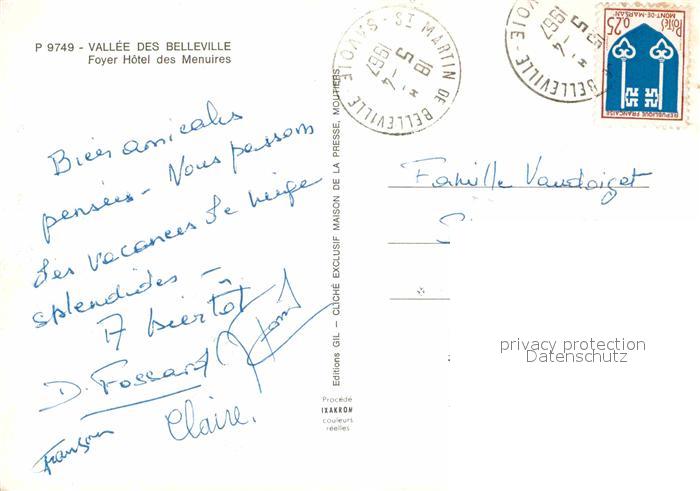 P 9749 - VALLÉE DES BELLEVILLE
Foyer Hôtel des Menuires
Bien amicales
pensées - Nous passons
des vacances de neige
splendides -
A bientôt
D. Fossard
Claire.
Editions GIL — CLICHÉ EXCLUSIF MAISON DE LA PRESSE, MOUTIERS
Procédé
IXAKROM
couleurs
réelles
ST MARTIN DE BELLEVILLE - SAVOIE
18 H
5 - 4
1967
BELLEVILLE - SAVOIE
5 - 4
1967
POSTES
0,25
MONT-DE-MARSAN
REPUBLIQUE FRANÇAISE
Famille
privacy protection
Datenschutz